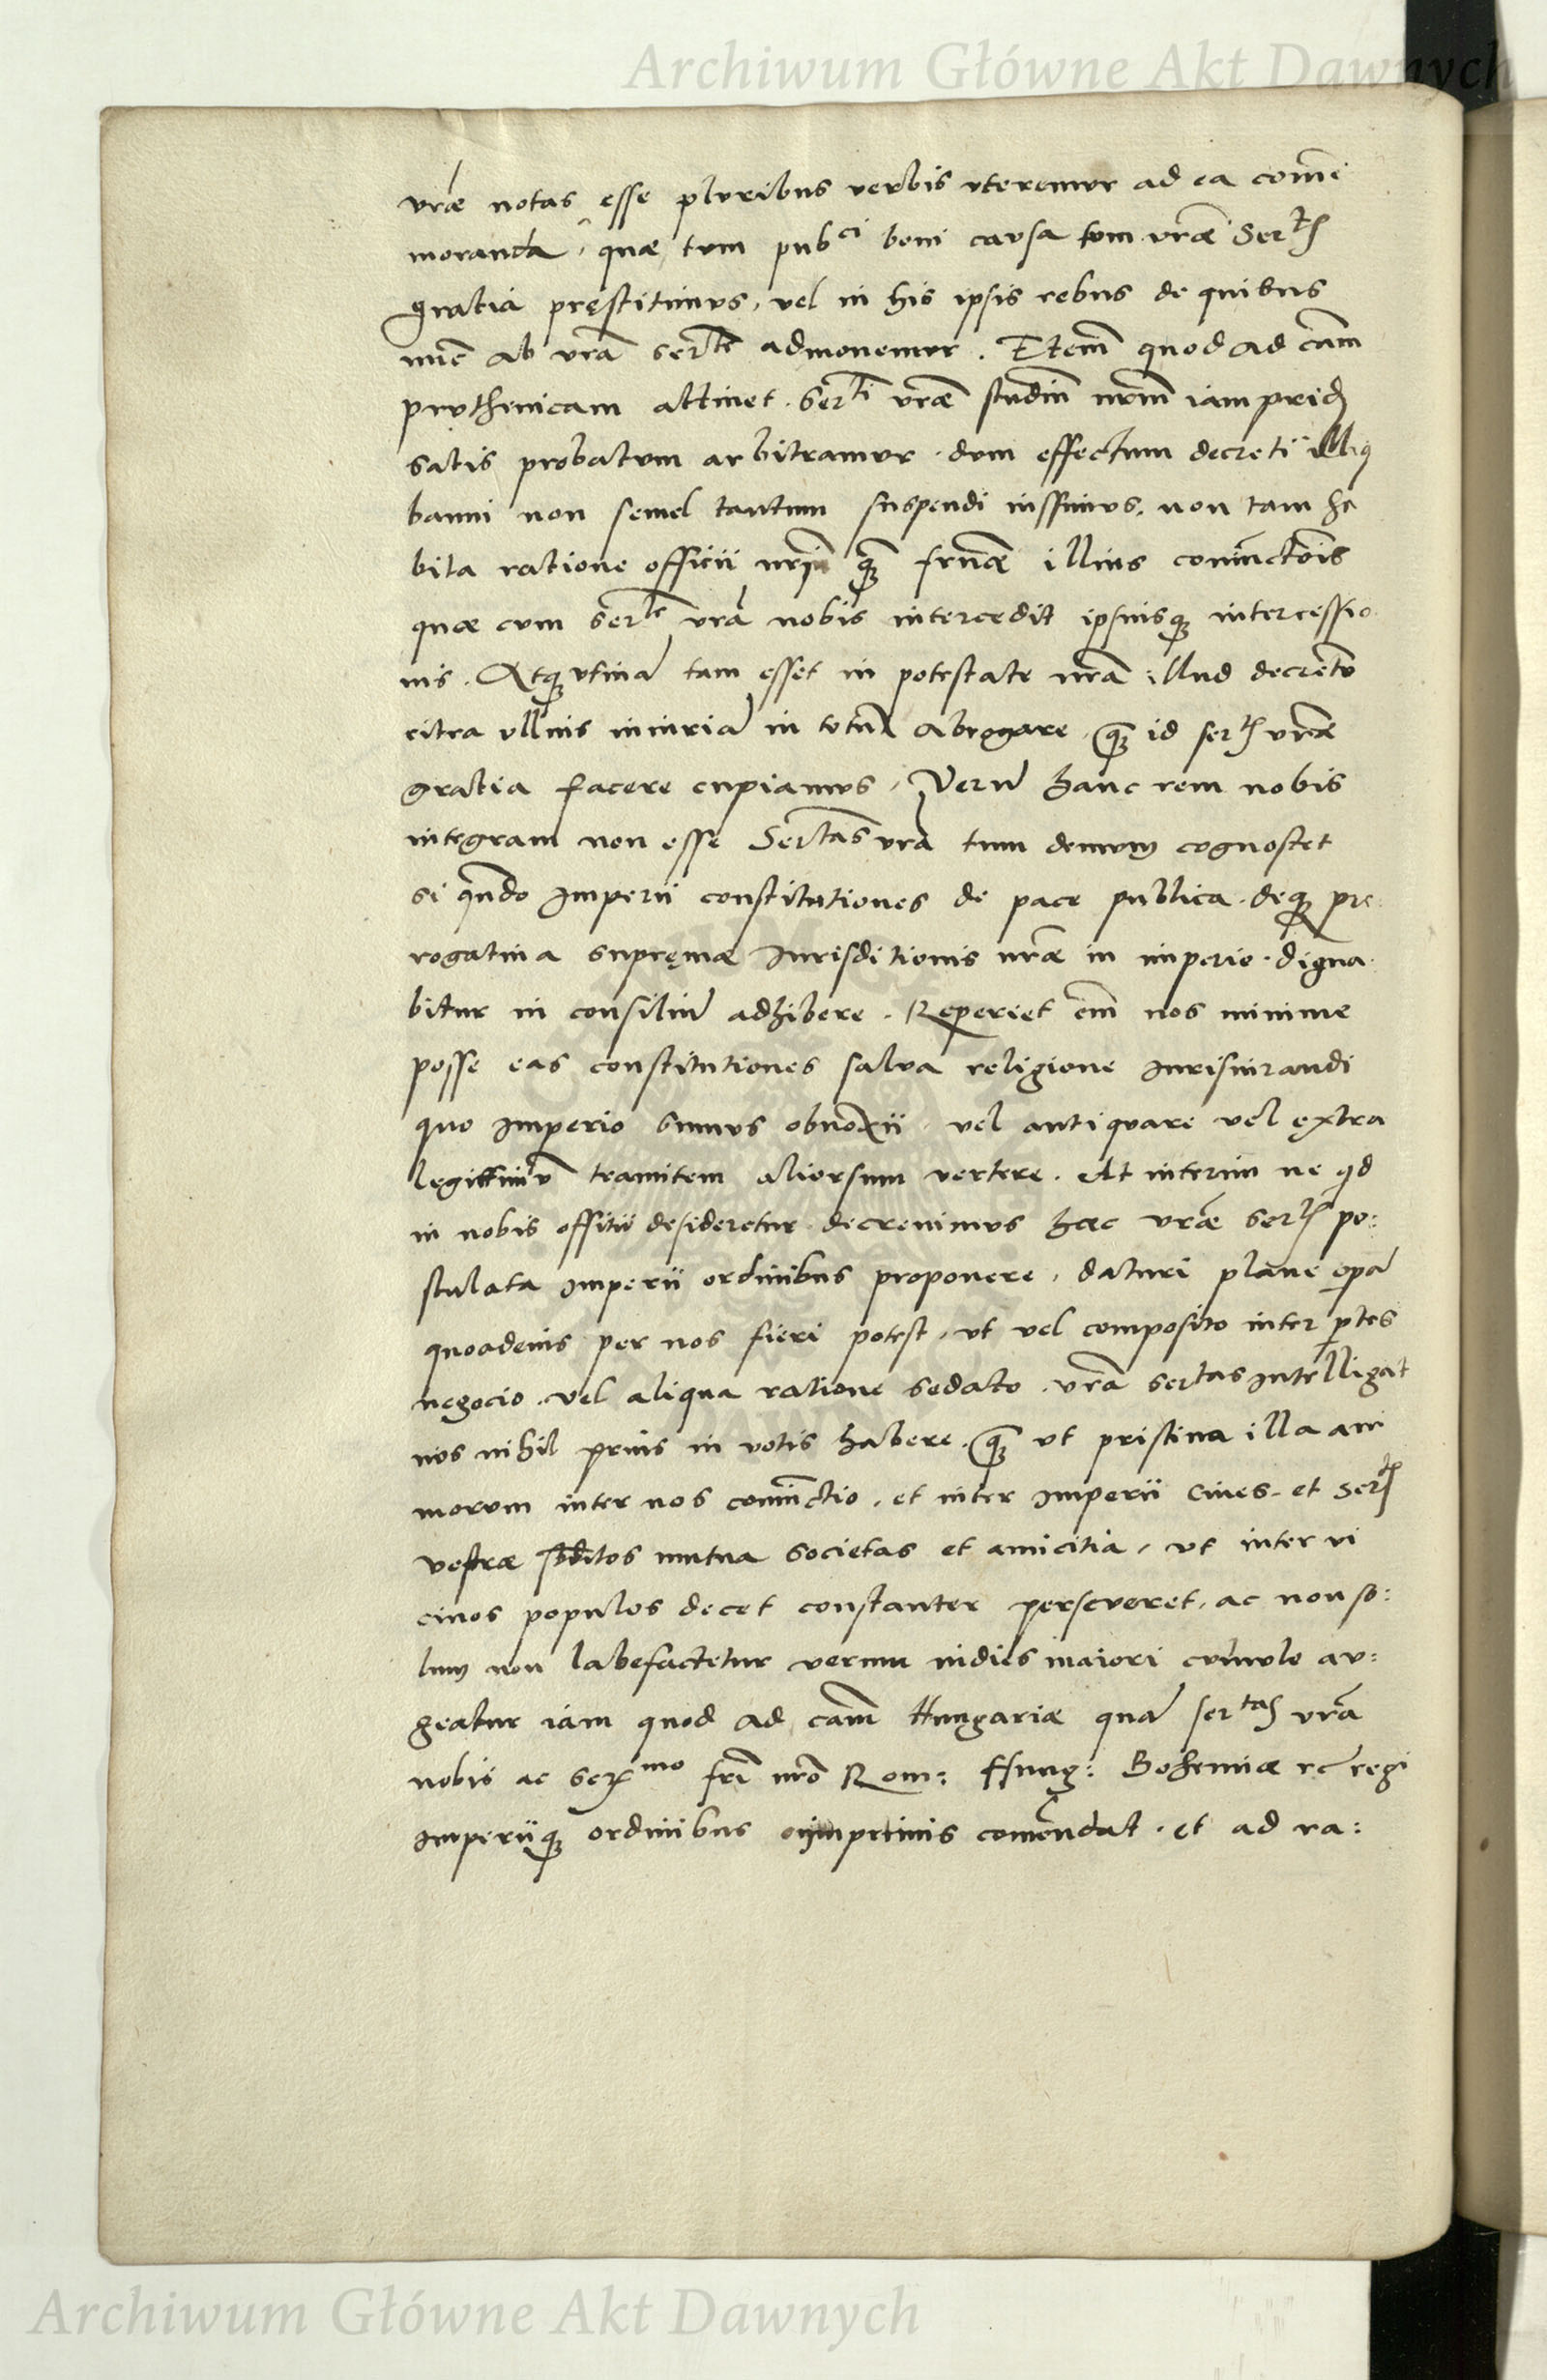 Archiwum Główne Akt Dawnych
vrãe notas esse pluribus verbis vteremur ad ea comẽ
moranda, quae tum pubci boni causa tum vrãe Sertis
gratia pręstitimus, vel in his ipsis rebus de quibus
nũc ab vrã Serte admonemur. Etenĩ quod ad cãm
pruthenicam attinet. Serti vrãe studiũ nrm̃ iam pridẽ
satis probatum arbitramur. dum effectum decreti illiq
banni non semel tantum suspendi iussimus. non tam ha
bita ratione officii nrĩ quã frñae illius coniunctõis
quae cum Serte vrã nobis intercedit ipsiusq intercessio
nis. Atq vtinã tam esset in potestate nrã illud decretũ
citra vllius iniuriã in totũ abrogare, quã id sertis vrãe
gratia facere cupiamus, Verũ hanc rem nobis
integram non esse Sertas vrã tum demum cognoscet
si qñdo Imperii constitutiones de pace publica. deq pre
rogatiua supręmae Iurisditionis nrãe in imperio. digna
bitur in consiliũ adhibere. Reperiet em̃ nos minime
posse eas constitutiones salua religione Iurisiurandi
quo Imperio sumus obnoxii. vel antiquare vel extra
legittimũ tramitem aliorsum vertere. At interim ne qd
in nobis offitii desideretur decreuimus haec vrãe sertis po:
stulata Imperii ordinibus proponere, daturi plane operã
quoadeius per nos fieri potest, vt vel composito inter ptes
negocio. vel aliqua ratione sedato. vrã sertas intelligat
nos nihil prius in votis habere. quã vt pristina illa ani
morum inter nos coniũctio, et inter Imperii ciues et Sertis
vestrae sbditos mutua societas et amicitia, vt inter vi
cinos populos decet constanter perseveret, ac non so:
lum non labefactetur verum indies maiori cumulo au:
geatur iam quod ad cãm Hungariae quã sertas vrã
nobis ac Sermo frĩ nrõ Rom: Hung: Bohemiae rc regi
Imperiiq ordinibus imprimis comẽndat. et ad ra:
Archiwum Główne Akt Dawnych